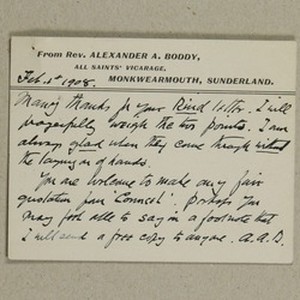 From Rev. ALEXANDER A. BODDY,
ALL SAINTS' VICARAGE,
MONKWEARMOUTH, SUNDERLAND.
Feb. 1st 1908.
Many thanks for your kind letter. I will
prayerfully weigh the two points. I am
always glad when they come through without
the laying on of hands.
You are welcome to make any fair
quotation from "Connect". Perhaps you
may feel able to say in a footnote that
I will send a free copy to anyone. A.A.B.